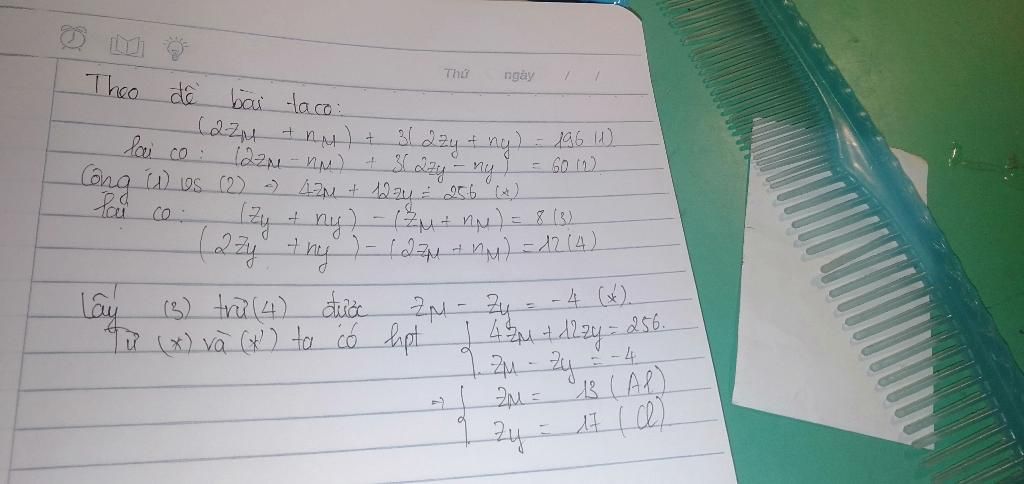 Thứ ngày / /
Theo đề bài ta co:
(2Z_M + n_M) + 3(2Zy + ny) = 196 (1)
lại co: (2Z_M - n_M) + 3(2Zy - ny) = 60 (2).
Cộng (1) vs (2) => 4Z_M + 12Zy = 256 (*)
lại co: (Zy + ny) - (Z_M + n_M) = 8 (3)
(2Zy + ny) - (2Z_M + n_M) = 12 (4)
Lấy (3) trừ (4) được Z_M - Zy = -4 (*').
Từ (*) và (*') ta có hpt { 4Z_M + 12Zy = 256.
Z_M - Zy = -4
=> { Z_M = 13 (Al)
Zy = 17 (Cl)